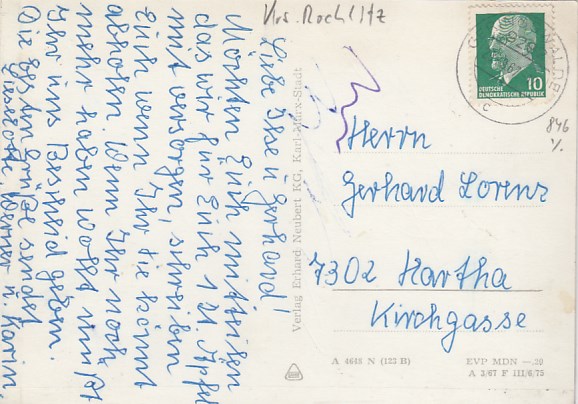 Krs. Rochlitz
Liebe Ilse u. Gerhard!
Möchten Euch mitteilen
das wir für Euch 1 Ztr Äpfel
mit versorgen, schreiben
Euch wenn Ihr sie könnt
abholen. Wenn Ihr noch
mehr haben wollt müßt
Ihr uns Bescheid geben.
Die besten Grüße sendet
Lieselotte, Werner u. Karin.
Verlag Erhard Neubert KG, Karl-Marx-Stadt
DEUTSCHE
DEMOKRATISCHE REPUBLIK
10
846
Herrn
Gerhard Lorenz
7302 Hartha
Kirchgasse
A 4648 N (123 B)
EVP MDN —.20
A 3/67 F III/6/75